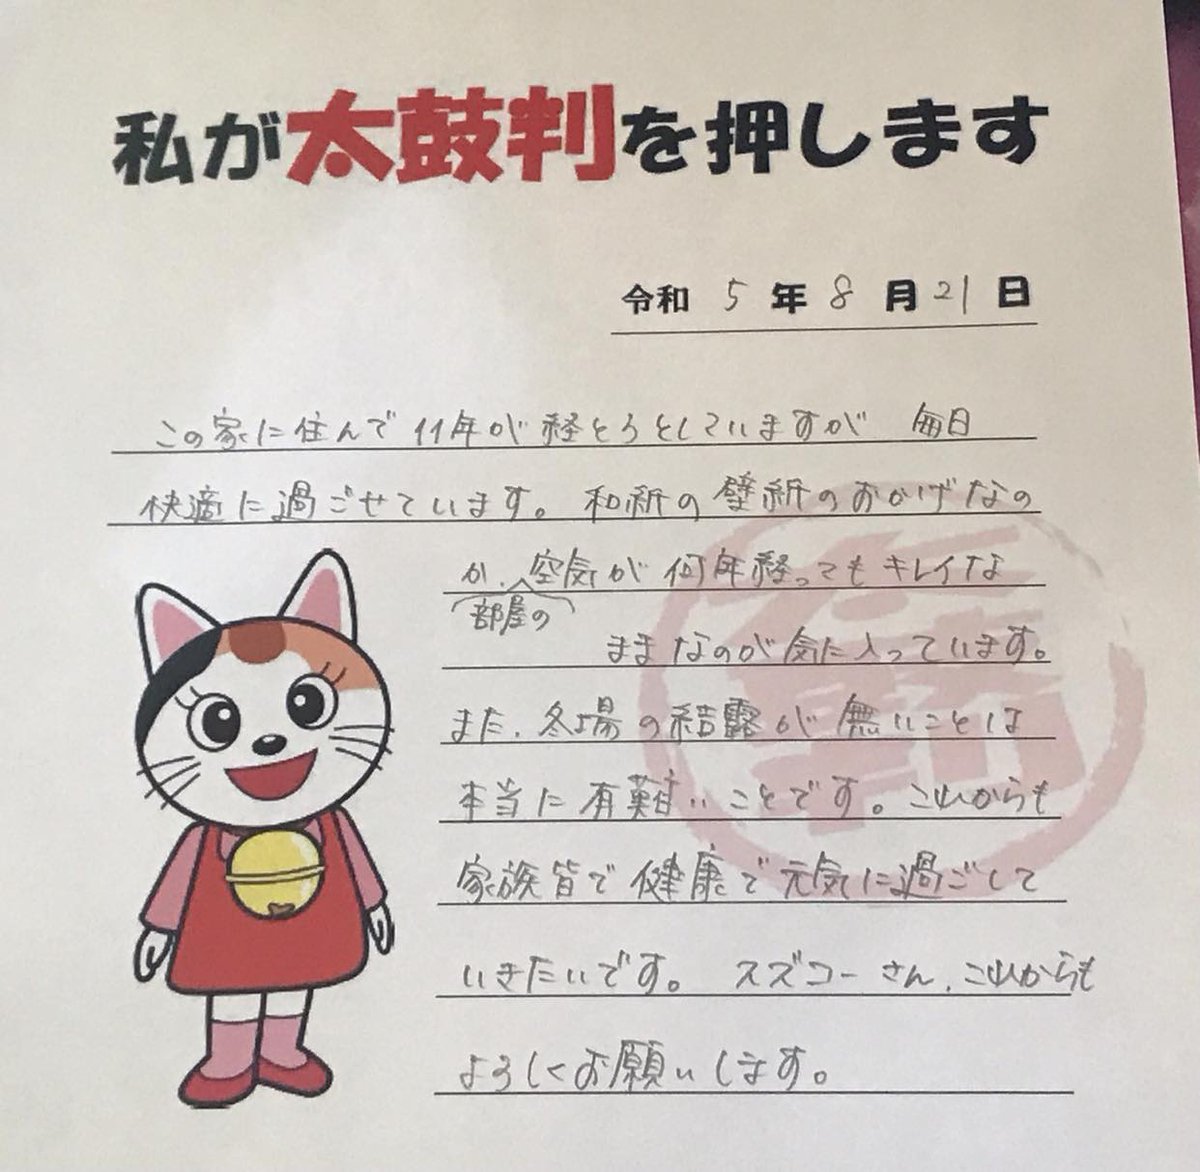 私が太鼓判を押します
令和 5 年 8 月 21 日
この家に住んで 11年が経とうとしていますが 毎日
快適に過ごせています。和紙の壁紙のおかげなの
か、空気が何年経ってもキレイな
部屋の
ままなのが気に入っています。
また、冬場の結露が無いことは
本当に有難いことです。これからも
家族皆で健康で元気に過ごして
いきたいです。 スズコーさん、これからも
よろしくお願いします。